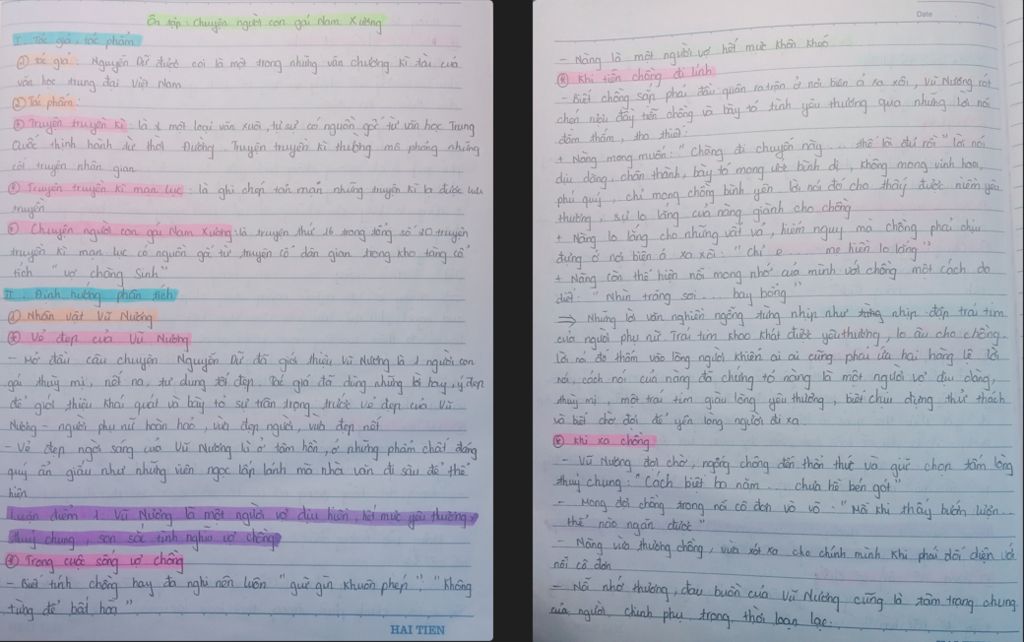 Ôn tập: Chuyện người con gái Nam Xương
I. Tác giả, tác phẩm
① Tác giả: Nguyễn Dữ được coi là một trong những văn chương kì tài của
văn học trung đại Việt Nam
② Tác phẩm:
* Truyện truyền kì: là 1 một loại văn xuôi, tự sự có nguồn gốc từ văn học Trung
Quốc thịnh hành từ thời Đường. Truyện truyền kì thường mô phỏng những
cốt truyện nhân gian
* Truyện truyền kì mạn lục: là ghi chép tản mạn những truyện kì lạ được lưu
truyền
* Chuyện người con gái Nam Xương là truyện thứ 16 trong tổng số 20 truyện
truyền kì mạn lục có nguồn gốc từ truyện cổ dân gian trong kho tàng cổ
tích "vợ chàng Sinh"
II. Định hướng phân tích
① Nhân vật Vũ Nương
* Vẻ đẹp của Vũ Nương
- Mở đầu câu chuyện Nguyễn Dữ đã giới thiệu Vũ Nương là 1 người con
gái thuỳ mị, nết na, tư dung tốt đẹp. Tác giả đã dùng những lời hay, ý đẹp
để giới thiệu khái quát và bày tỏ sự trân trọng trước vẻ đẹp của Vũ
Nương - người phụ nữ hoàn hảo, vừa đẹp người, vừa đẹp nết
- Vẻ đẹp ngời sáng của Vũ Nương là ở tâm hồn, ở những phẩm chất đáng
quý ẩn giấu như những viên ngọc lấp lánh mà nhà văn đi sâu để thể
hiện
Luận điểm 1. Vũ Nương là một người vợ dịu hiền, hết mực yêu thương,
thuỷ chung, son sắc tình nghĩa vợ chồng
* Trong cuộc sống vợ chồng
- Biết tính chồng hay đa nghi nên luôn "giữ gìn khuôn phép", "không
từng để bất hoà"
HAI TIEN
Date
- Nàng là một người vợ hết mực khôn khéo
* Khi tiễn chồng đi lính
- Biết chồng sắp phải đầu quân ra trận ở nơi biên ải xa xôi, Vũ Nương rót
chén rượu đầy tiễn chồng và bày tỏ tình yêu thương qua những lời nói
đằm thắm, tha thiết:
+ Nàng mong muốn: "Chàng đi chuyến này ... thế là đủ rồi" lời nói
dịu dàng, chân thành, bày tỏ mong ước bình dị, không mong vinh hoa,
phú quý, chỉ mong chồng bình yên. Lời nói đó cho thấy được niềm yêu
thương, sự lo lắng của nàng giành cho chồng
+ Nàng lo lắng cho những vất vả, hiểm nguy mà chồng phải chịu
đựng ở nơi biên ải xa xôi: "Chỉ e ... mẹ hiền lo lắng"
+ Nàng còn thể hiện nỗi mong nhớ của mình với chồng một cách da
diết: "Nhìn trăng soi ... bay bổng"
⇒ Những lời văn nghiền ngẫm từng nhịp như từng nhịp đập trái tim
của người phụ nữ. Trái tim khao khát được yêu thương, lo âu cho chồng.
Lời nói đó thấm vào lòng người khiến ai ai cũng phải ứa hai hàng lệ. Lời
nói, cách nói của nàng đã chứng tỏ nàng là một người vợ dịu dàng,
thuỳ mị, một trái tim giàu lòng yêu thương, biết chịu đựng thử thách
và biết chờ đợi để yên lòng người đi xa.
* Khi xa chồng
- Vũ Nương đợi chờ, ngóng chồng đến thổn thức và giữ chọn tấm lòng
thuỷ chung: "Cách biệt ba năm ... chưa hề bén gót"
- Mong đợi chồng trong nỗi cô đơn vò võ: "Mỗi khi thấy bướm lượn ...
thể nào ngăn được"
- Nàng vừa thương chồng, vừa xót xa cho chính mình khi phải đối diện với
nỗi cô đơn
- Nỗi nhớ thương, đau buồn của Vũ Nương cũng là tâm trạng chung
của người chinh phụ trong thời loạn lạc.